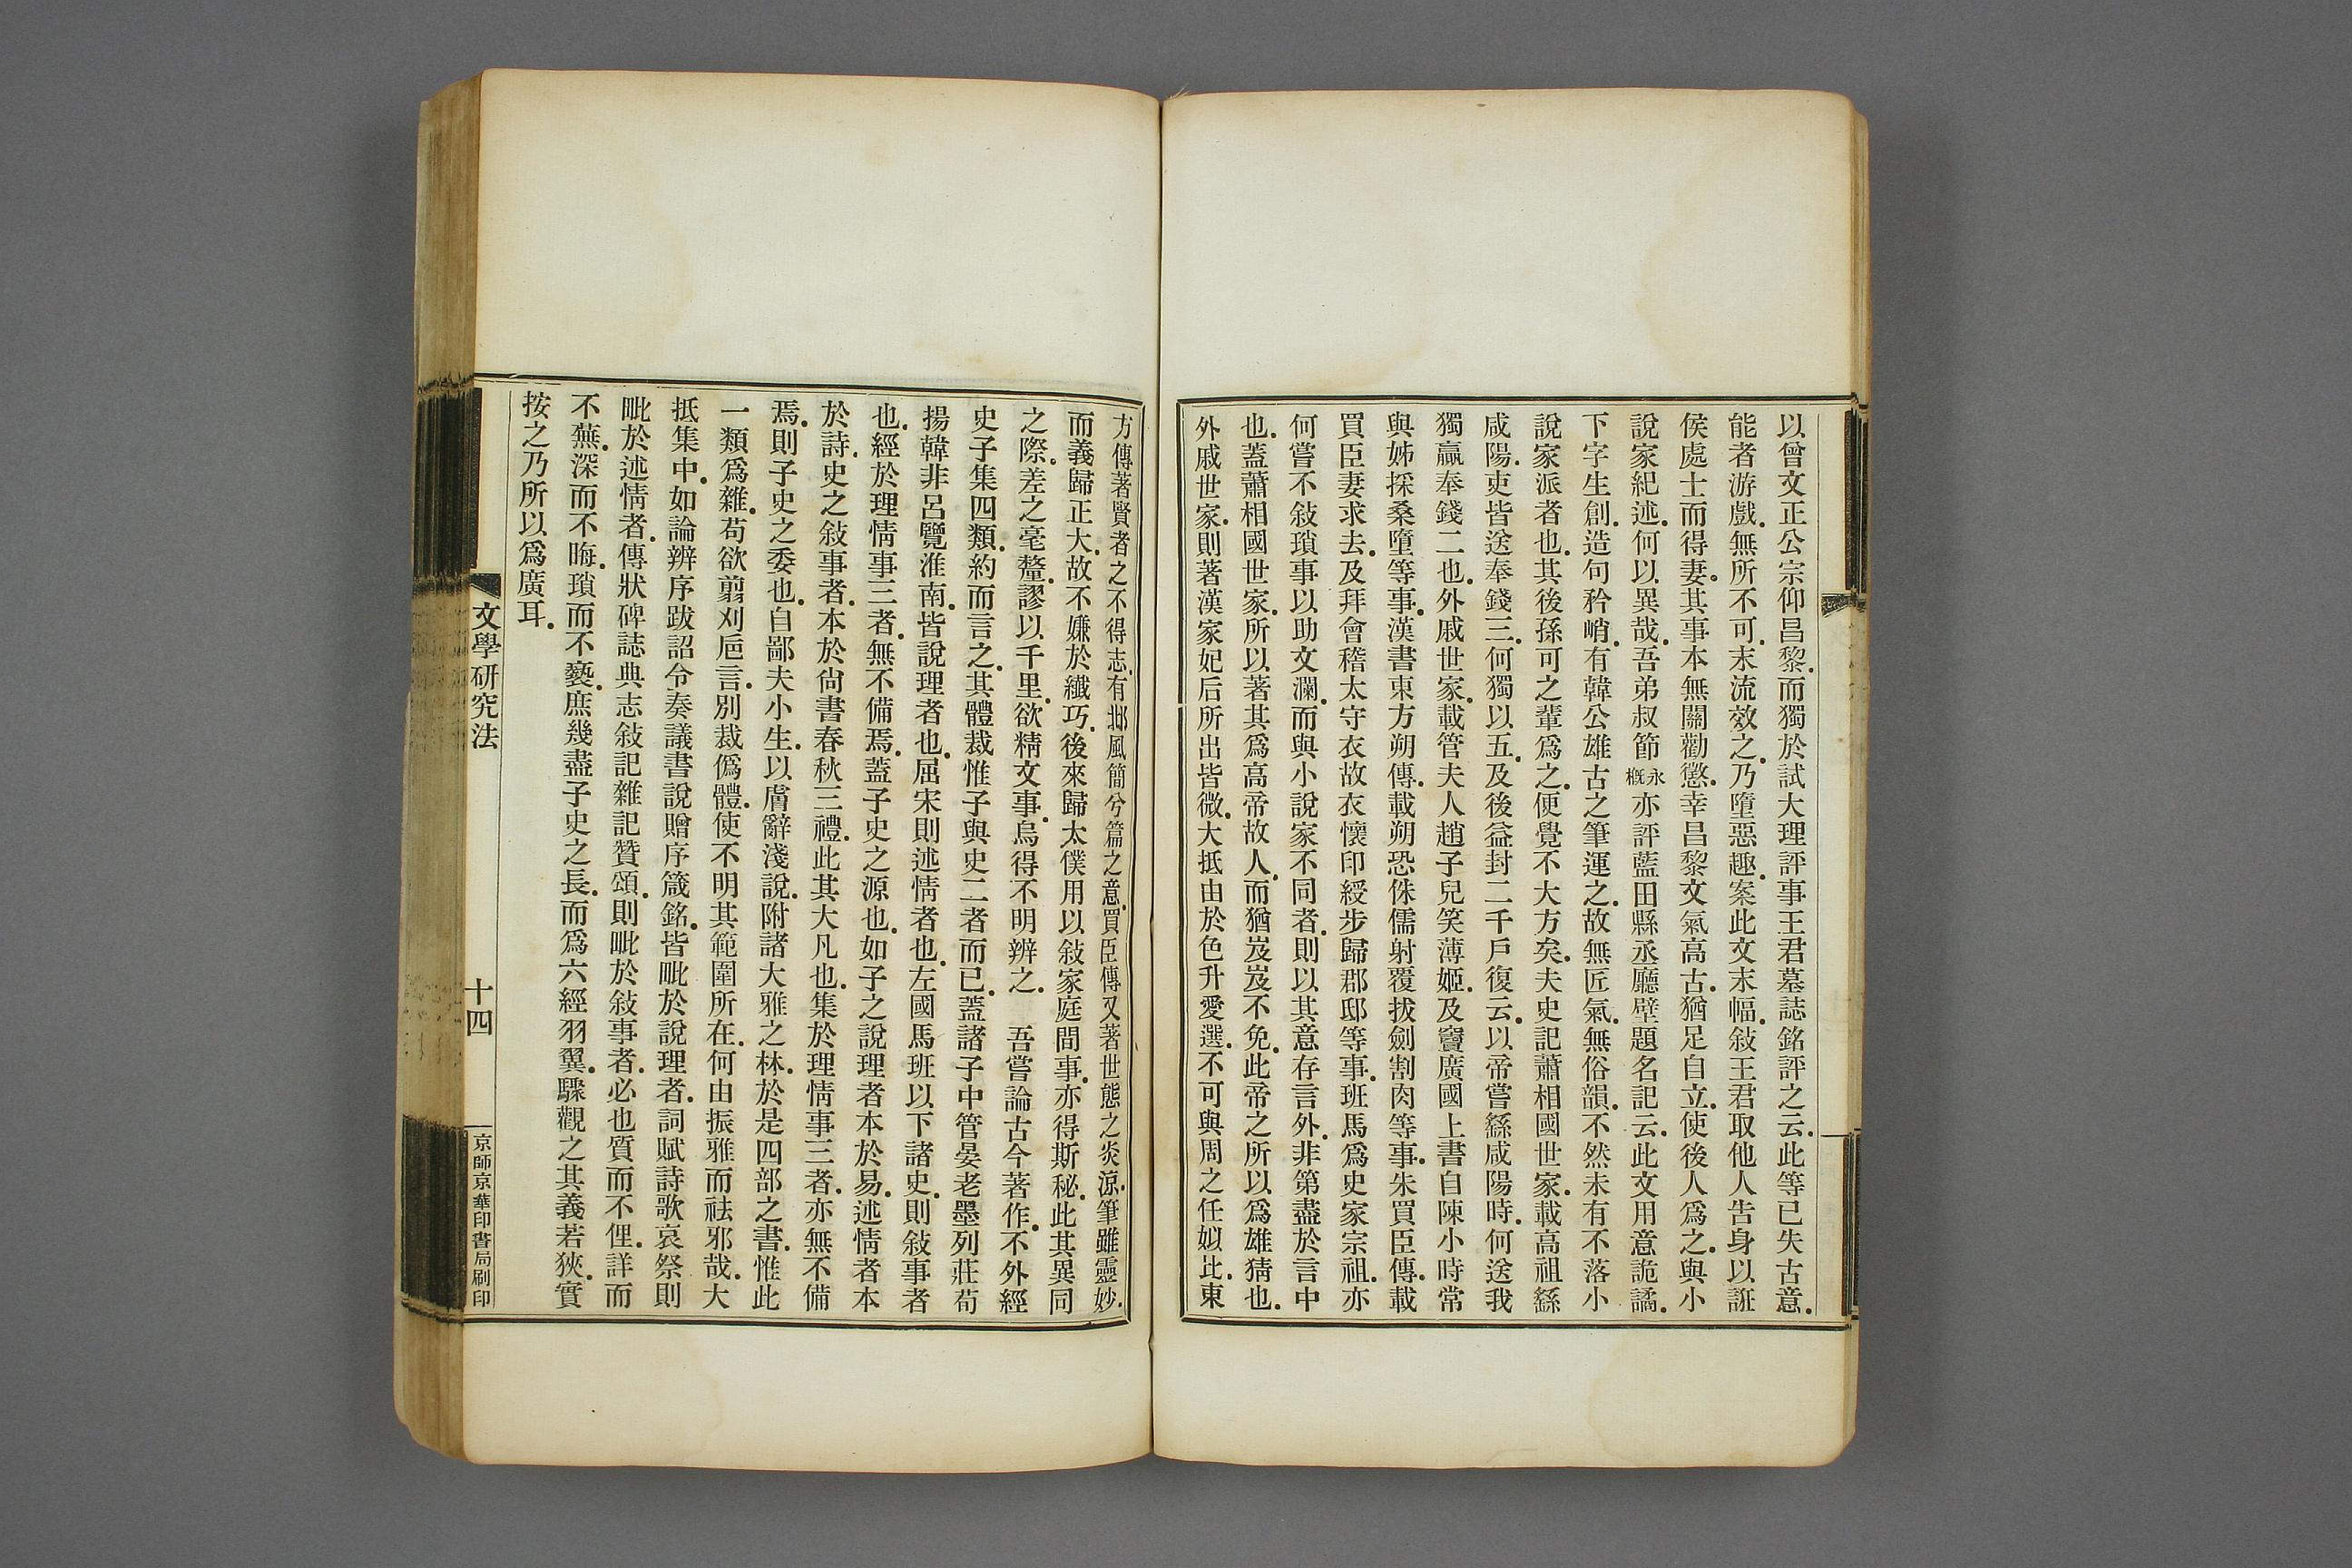 以曾文正公宗仰昌黎.而獨於試大理評事王君墓誌銘評之云.此等已失古意.
能者游戲.無所不可.末流效之.乃墮惡趣.案此文末幅.敍王君取他人告身以誑
侯處士而得妻.其事本無關勸懲.幸昌黎文氣高古.猶足自立.使後人爲之.與小
說家紀述.何以異哉.吾弟叔節永概亦評藍田縣丞廳壁題名記云.此文用意詭譎.
下字生創.造句矜峭.有韓公雄古之筆運之.故無匠氣.無俗韻.不然未有不落小
說家派者也.其後孫可之輩爲之.便覺不大方矣.夫史記蕭相國世家.載高祖繇
咸陽.吏皆送奉錢三.何獨以五.及後益封二千戶復云.以帝嘗繇咸陽時.何送我
獨贏奉錢二也.外戚世家.載管夫人趙子兒笑薄姬.及竇廣國上書自陳小時常
與姊採桑墮等事.漢書東方朔傳.載朔恐侏儒射覆拔劍割肉等事.朱買臣傳.載
買臣妻求去.及拜會稽太守衣故衣懷印綬步歸郡邸等事.班馬爲史家宗祖.亦
何嘗不敍瑣事以助文瀾.而與小說家不同者.則以其意存言外.非第盡於言中
也.蓋蕭相國世家.所以著其爲高帝故人.而猶岌岌不免.此帝之所以爲雄猜也.
外戚世家.則著漢家妃后所出皆微.大抵由於色升愛選.不可與周之任姒比.東
方傳著賢者之不得志.有邶風簡兮篇之意.買臣傳又著世態之炎涼.筆雖靈妙.
而義歸正大.故不嫌於纖巧.後來歸太僕用以敍家庭間事.亦得斯秘.此其異同
之際.差之毫釐.謬以千里.欲精文事.烏得不明辨之.　吾嘗論古今著作.不外經
史子集四類.約而言之.其體裁惟子與史二者而已.蓋諸子中管晏老墨列莊荀
揚韓非呂覽淮南.皆說理者也.屈宋則述情者也.左國馬班以下諸史.則敍事者
也.經於理情事三者.無不備焉.蓋子史之源也.如子之說理者本於易.述情者本
於詩.史之敍事者.本於尙書春秋三禮.此其大凡也.集於理情事三者.亦無不備
焉.則子史之委也.自鄙夫小生.以膚辭淺說.附諸大雅之林.於是四部之書.惟此
一類爲雜.苟欲翦刈巵言.別裁僞體.使不明其範圍所在.何由振雅而祛邪哉.大
抵集中.如論辨序跋詔令奏議書說贈序箴銘.皆毗於說理者.詞賦詩歌哀祭則
毗於述情者.傳狀碑誌典志敍記雜記贊頌.則毗於敍事者.必也質而不俚.詳而
不蕪.深而不晦.瑣而不褻.庶幾盡子史之長.而爲六經羽翼.驟觀之其義若狹.實
按之乃所以爲廣耳.
文學研究法
十四
京師京華印書局刷印